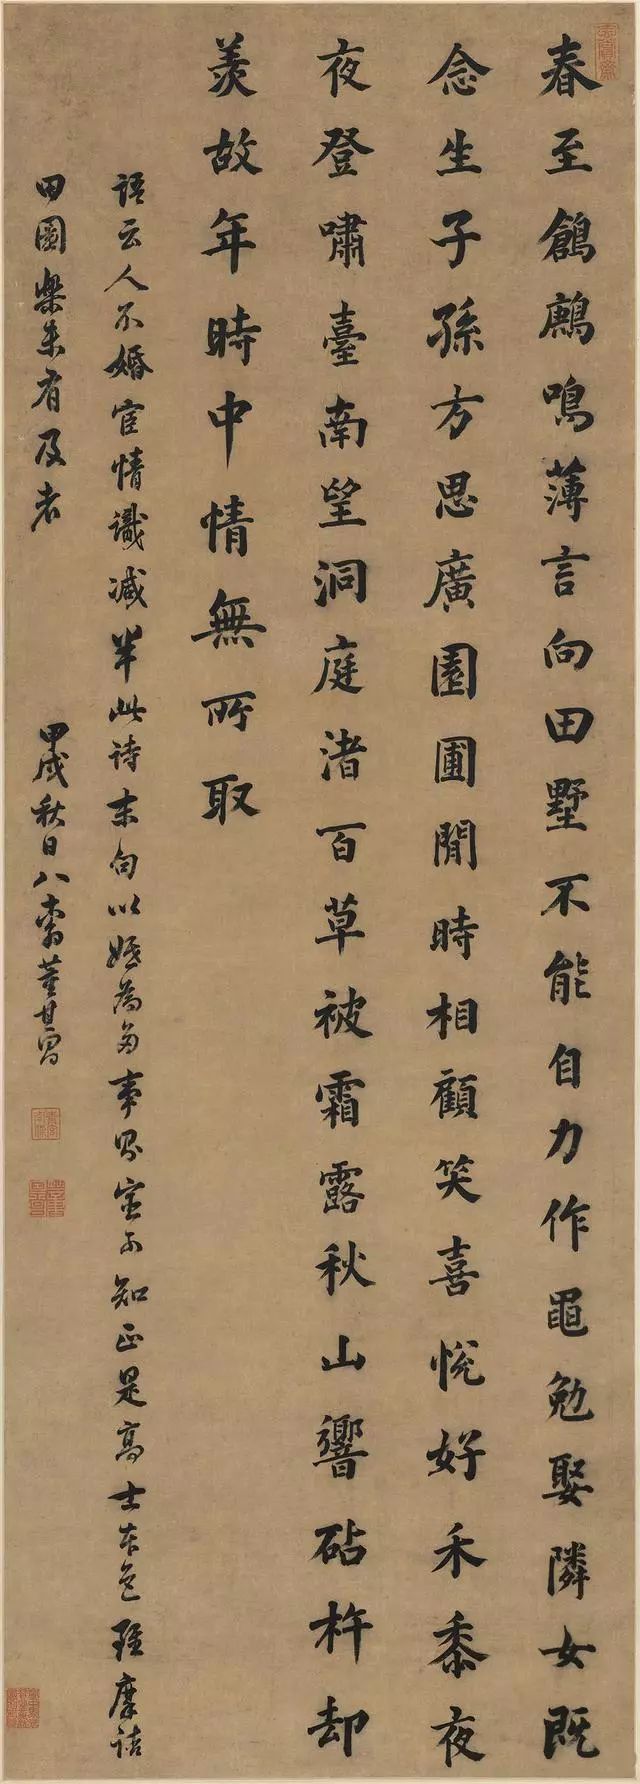 春至鶬鶊鳴薄言向田墅不能自力作黽勉娶隣女既
念生子孫方思廣園圃閒時相顧笑喜悅好禾黍夜
夜登嘯臺南望洞庭渚百草被霜露秋山響砧杵却
羨故年時中情無所取
語云人不婚宦情識减半此詩末句以婚為多事不知正是高士本色雖摩詰
田園樂未有及者
甲戌秋日八董其昌